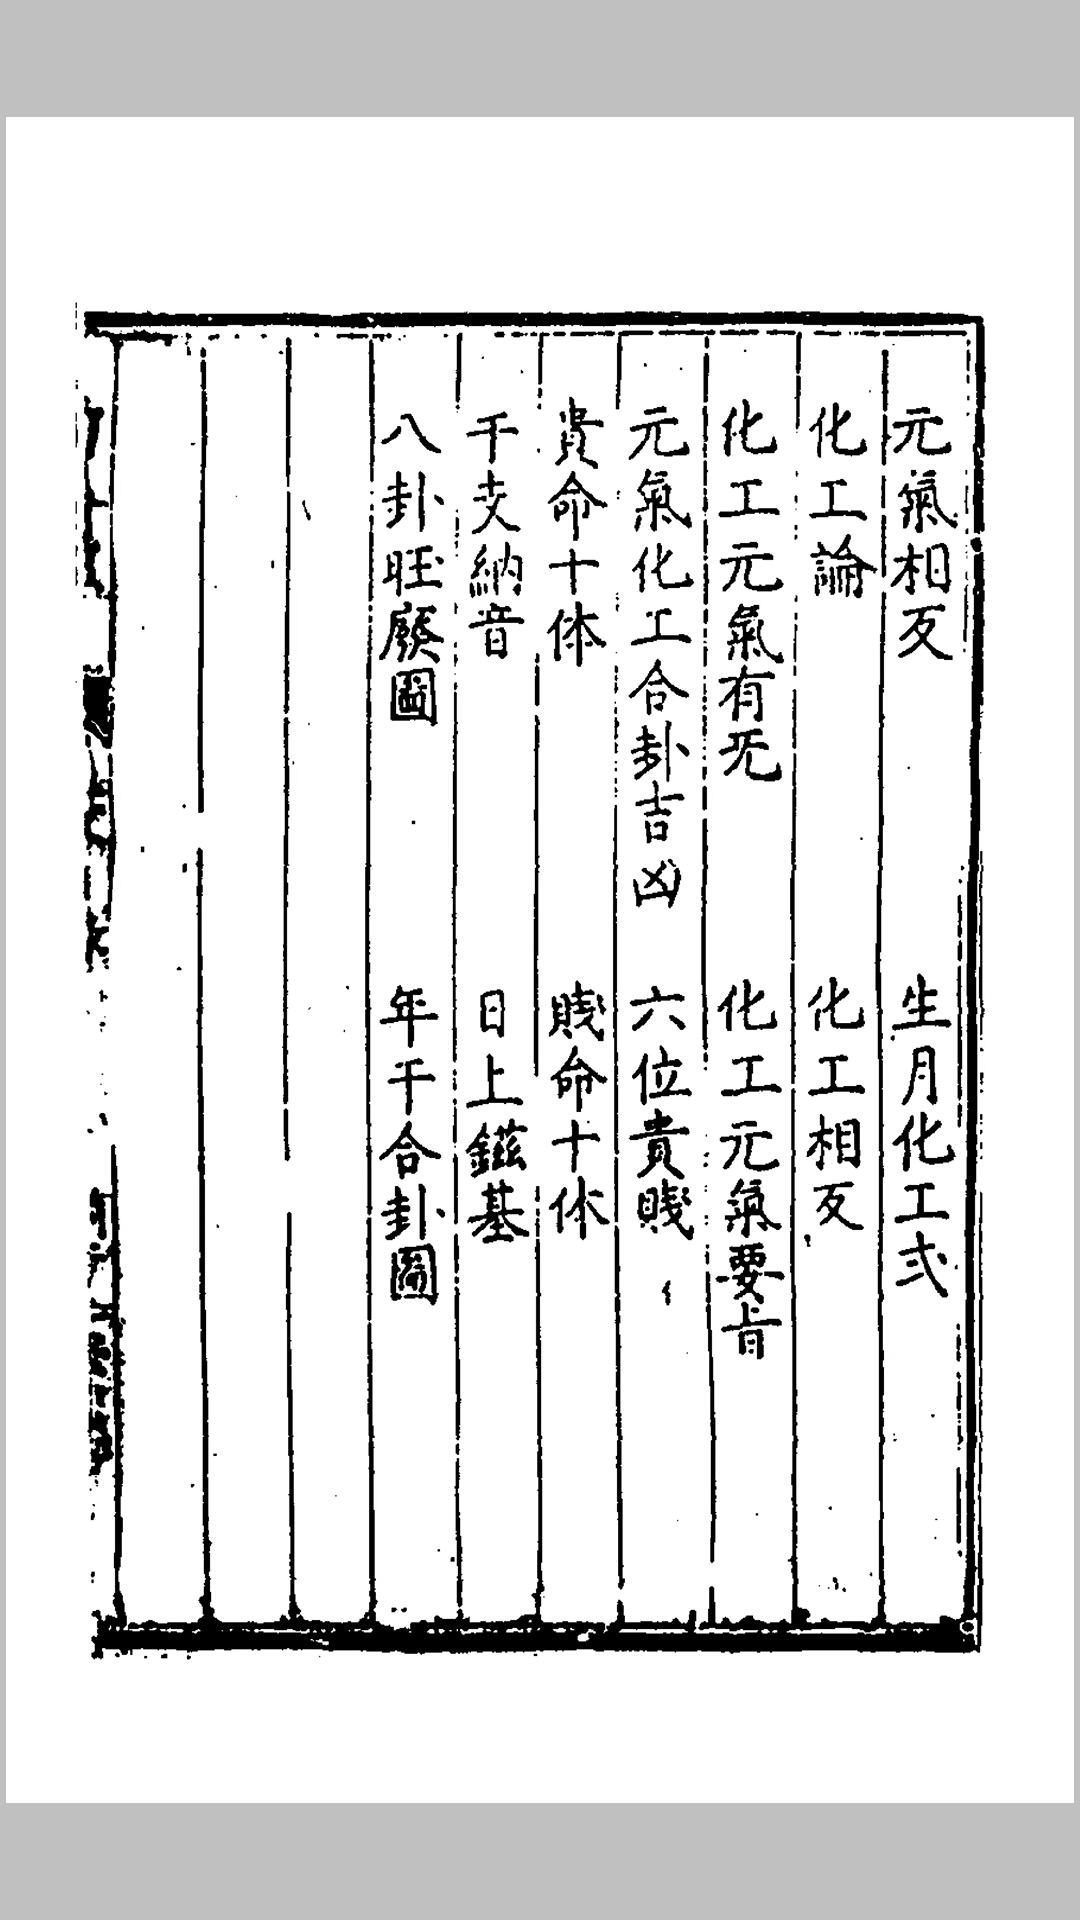 元氣相反　生月化工式
化工論　化工相反
化工元氣有旡　化工元氣要旨
元氣化工合卦吉凶　六位貴賤
貴命十体　賤命十体
干支納音　日上鎡基
八卦旺廢圖　年干合卦圖